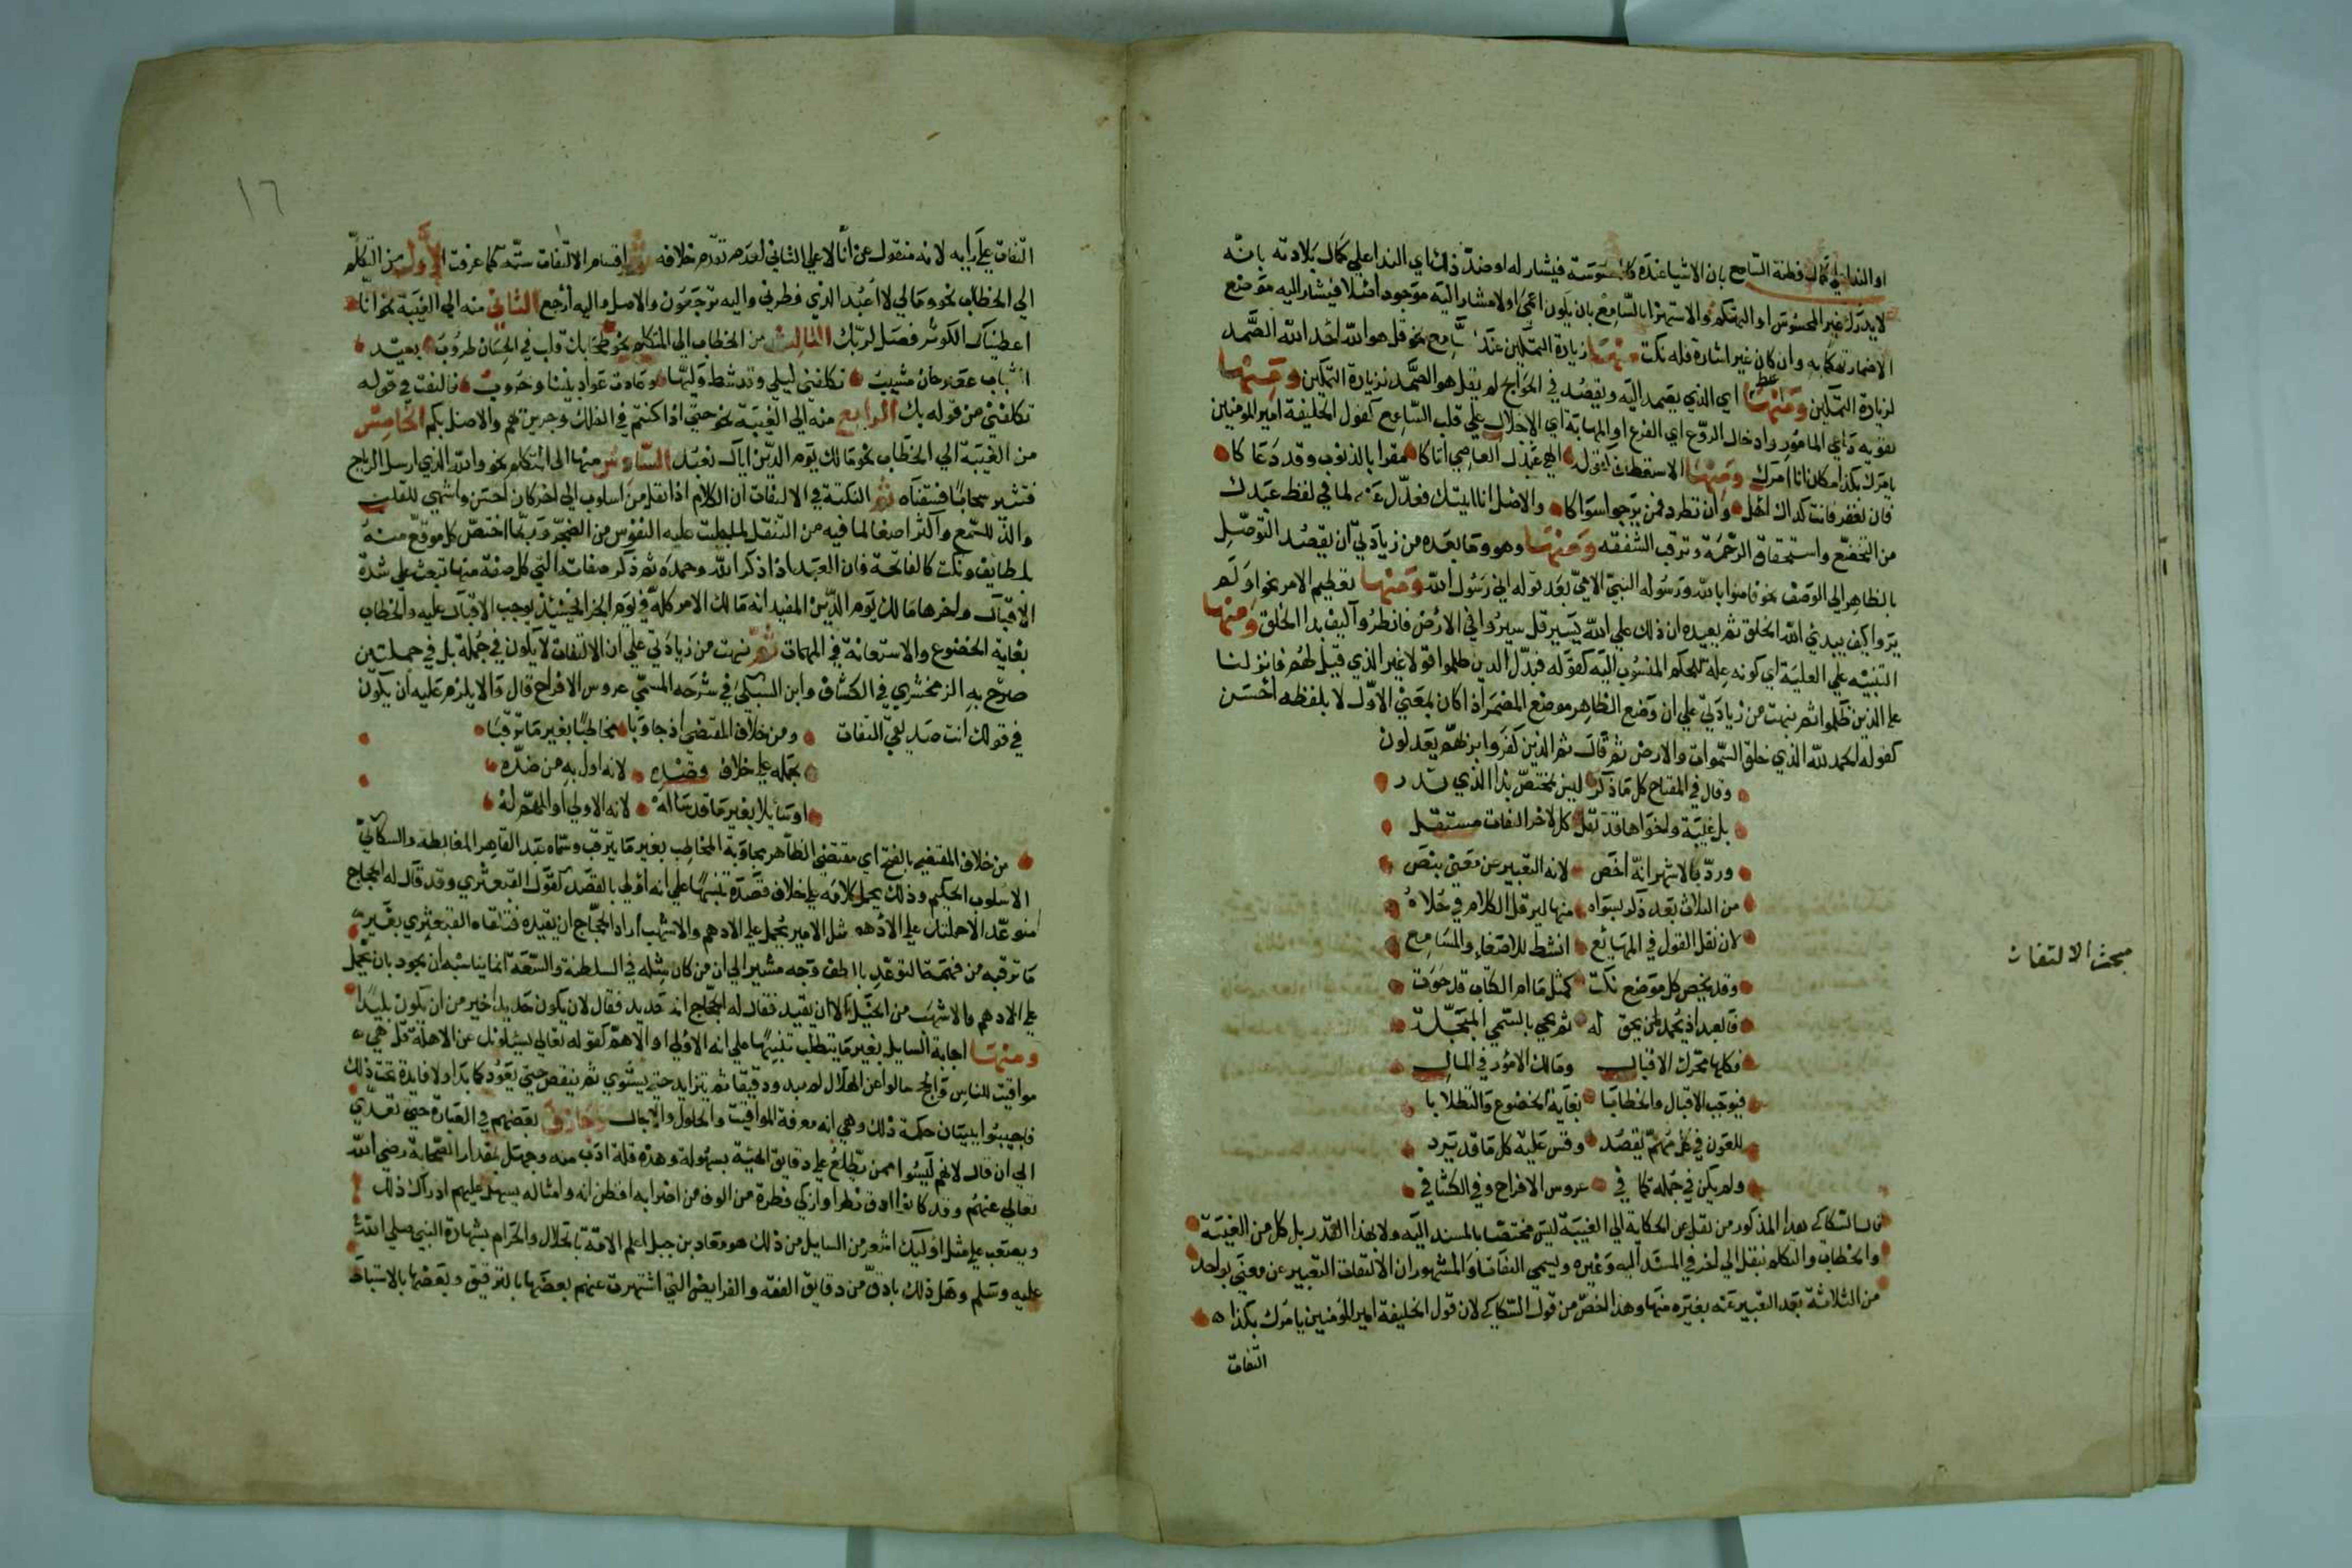 او الندا علي كمال فطنة السامع بان الاشيا عنده كالمحسوسة فيشار له او ضد ذلك اي الندا علي كمال بلادته بانه
لا يدرك غير المحسوس او التهكم والاستهزا بالسامع بان يكون اعمي او لا مشار اليه موجود اصلا فيشار اليه موضع
الاضمار تهكما به وان كان غير اشارة فله نكت منها زيادة التمكين عند السامع نحو قل هو الله احد الله الصمد
اي الذي يصمد اليه ويقصد في الحوايج لم يقل هو الصمد لزيادة التمكين ومنها
تقوية داعي المامور وادخال الروع اي الفزع او المهابة اي الاجلال علي قلب السامع كقول الخليفة امير المومنين
يامرك بكذا مكان انا امرك ومنها الاستعطاف كقوله الهي عبدك العاصي اتاكا مقرا بالذنوب وقد دعاكا
فان تغفر فانت لذاك اهل وان تطرد فمن يرجو سواكا والاصل انا اتيتك فعدل عنه لما في لفظ عبدك
من التخضع واستحقاق الرحمة وترقب الشفقه ومنها وهو وما بعده من زيادتي ان يقصد التوصل
بالظاهر الي الوصف نحو فامنوا بالله ورسوله النبي الامي بعد قوله اني رسول الله ومنها تعظيم الامر نحو اولم
يروا كيف يبدئ الله الخلق ثم يعيده ان ذلك علي الله يسير قل سيروا في الارض فانظروا كيف بدا الخلق ومنها
التنبيه علي العلية اي كونه علة للحكم المنسوب اليه كقوله فبدل الذين ظلموا قولا غير الذي قيل لهم فانزلنا
علي الذين ظلموا ثم نبهت من زيادتي علي ان وضع الظاهر موضع المضمر اذا كان بمعني الاول لا بلفظه احسن
كقوله الحمد لله الذي خلق السموات والارض ثم قال ثم الذين كفروا بربهم يعدلون
وقال في المفتاح كل ما ذكر ليس بمختص بذا الذي قدر
بل غيبة واخواها قد نقل كل لاخر التفات مستقل
ورد فالاشهر انه اخص لانه التعبير عن معني بنص
من الثلاث بعد ذكر بسواه منها ليرقل الكلام في حلاه
لان نقل القول في المهايع انشط للاصغاء والمسامع
وقد يخص كل موضع نكت كمثل ما ام الكتاب قد حوت
فالعبد اذ يحمد من يحق له ثم يجي بالسمي المبجلة
فكلها محرك الاقبال ومالك الامور في المال
فيوجب الاقبال والخطابا بغاية الخضوع والتطلابا
للعون في كل مهم يقصد وقس عليه كل ما قد يرد
ولم يكن في جملة كما في عروس الافراح وفي الكشاف
قال السكاكي هذا المذكور من نقل عن الحكاية الي الغيبة ليس مختصا بالمسند اليه ولا بهذا القدر بل كل من الغيبة
والخطاب والتكلم ينقل الي اخر في المسند اليه وغيره ويسمي التفاتا والمشهور ان الالتفات التعبير عن معني بواحد
من الثلاثة بعد التعبير عنه بغيره منها وهذا اخص من قول السكاكي لان قول الخليفة امير المومنين يامرك بكذا
التفات
مبحث الالتفات
١٦
التفات علي رايه لانه منقول عن انا لا علي الثاني لعدم تقدم خلافه ثم اقسام الالتفات ستة كما عرفت الاول من التكلم
الي الخطاب نحو ومالي لا اعبد الذي فطرني واليه ترجعون والاصل واليه ارجع الثاني منه الي الغيبة نحو انا
اعطيناك الكوثر فصل لربك الثالث من الخطاب الي المتكلم نحو طحا بك قلب في الحسان طروب بعيد
الشباب عصر حان مشيب تكلفني ليلي وقد شط وليها وعادت عواد بيننا وخروب فالتفت في قوله
تكلفني من قوله بك الرابع منه الي الغيبة نحو حتي اذا كنتم في الفلك وجرين بهم والاصل بكم الخامس
من الغيبة الي الخطاب نحو مالك يوم الدين اياك نعبد السادس منها الي المتكلم نحو والله الذي ارسل الرياح
فتثير سحابا فسقناه ثم النكتة في الالتفات ان الكلام اذا نقل من اسلوب الي اخر كان احسن واشهي للقلب
والذ للسمع واكثر اصغا لما فيه من التنقل لما جبلت عليه النفوس من الضجر وربما اختص كل موقع منه
بلطايف ونكت كالفاتحة فان العبد اذا ذكر الله وحمده ثم ذكر صفاته التي كل صفة منها تبعث علي شدة
الاقبال واخرها مالك يوم الدين المفيد انه مالك الامر كله في يوم الجزا فحينئذ يوجب الاقبال عليه والخطاب
بغاية الخضوع والاستعانة في المهمات ثم نبهت من زيادتي علي ان الالتفات لا يكون في جملة بل في جملتين
صرح به الزمخشري في الكشاف وابن السبكي في شرحه المسمي عروس الافراح قال والا يلزم عليه ان يكون
في قولك انت صديقي التفات ومن خلاف المقتضي اذ جاوبا مخاطبا بغير ما ترقبا
بحمله علي خلاف وقصده لانه اولي به من ضده
او سايلا بغير ما قد ساله لانه الاولي او المهم له
من خلاف المقتضي بالفتح اي مقتضي الظاهر مجاوبة المخاطب بغير ما يترقب وسماه عبد القاهر المغالطه والسكاكي
الاسلوب الحكيم وذلك بحمل كلامه علي خلاف قصده تنبيها علي انه اولي بالقصد كقول القبعثري وقد قال له الحجاج
متوعدا لاحملنك علي الادهم مثل الامير يحمل علي الادهم والاشهب اراد الحجاج ان يقيده فتلقاه القبعثري بغير
ما ترقبه من فهمه التوعد بالطف وجه مشيرا الي ان من كان مثله في السلطنة والسعة انما يناسبه ان يجود بان يحمل
علي الادهم والاشهب من الخيل لا ان يقيد فقال له الحجاج انه حديد فقال لان يكون حديدا خير من ان يكون بليدا
ومنها اجابة السايل بغير ما يتطلب تنبيها علي انه الاولي او الاهم كقوله تعالي يسئلونك عن الاهلة قل هي
مواقيت للناس والحج سالوا عن الهلال لم يبد ودقيقا ثم يتزايد حتي يستوي ثم ينقص حتي يعود كما بدا ولا فايدة تحت ذلك
فاجيبوا ببيان حكمة ذلك وهي انه معرفة المواقيت والحلول والاجال بعضهم في العبارة حتي تعدي
الي ان قال لانهم ليسوا ممن يطلع علي دقايق الهيئة بسهولة وهذه قلة ادب منه وجهل بمقدار الصحابة رضي الله
تعالي عنهم وقد كانوا ادق نظرا وازكي فطرة من الوف من اضرابه افطن انه وامثاله يسهل عليهم ادراك ذلك
ويصعب علي مثل اوليك اشعر من السايل من ذلك هو معاد بن جبل اعلم الامة بالحلال والحرام بشهادة النبي صلي الله
عليه وسلم وهل ذلك بادق من دقايق الفقه والفرايض التي اشتهرت عنهم بعضها بالتوقيف وبعضها بالاستنباط